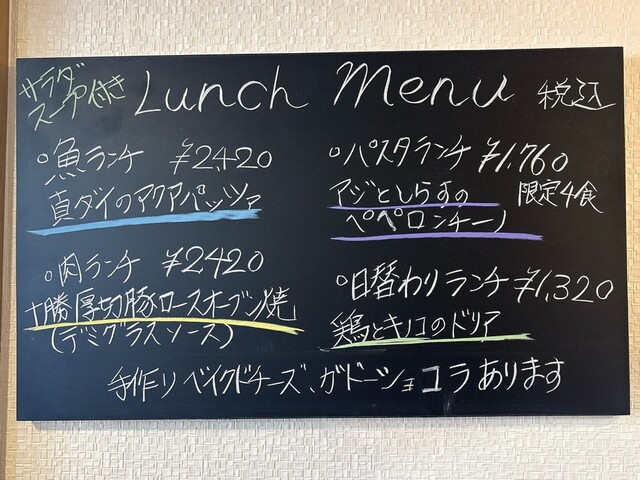 サラダ
スープ付き
Lunch Menu 税込
○魚ランチ ¥2,420
真ダイのアクアパッツァ
○肉ランチ ¥2420
十勝厚切豚ロースオーブン焼
(デミグラスソース)
○パスタランチ ¥1,760
アジとしらすの 限定4食
ペペロンチーノ
○日替わりランチ ¥1,320
鶏とキノコのドリア
手作りベイクドチーズ、ガトーショコラあります